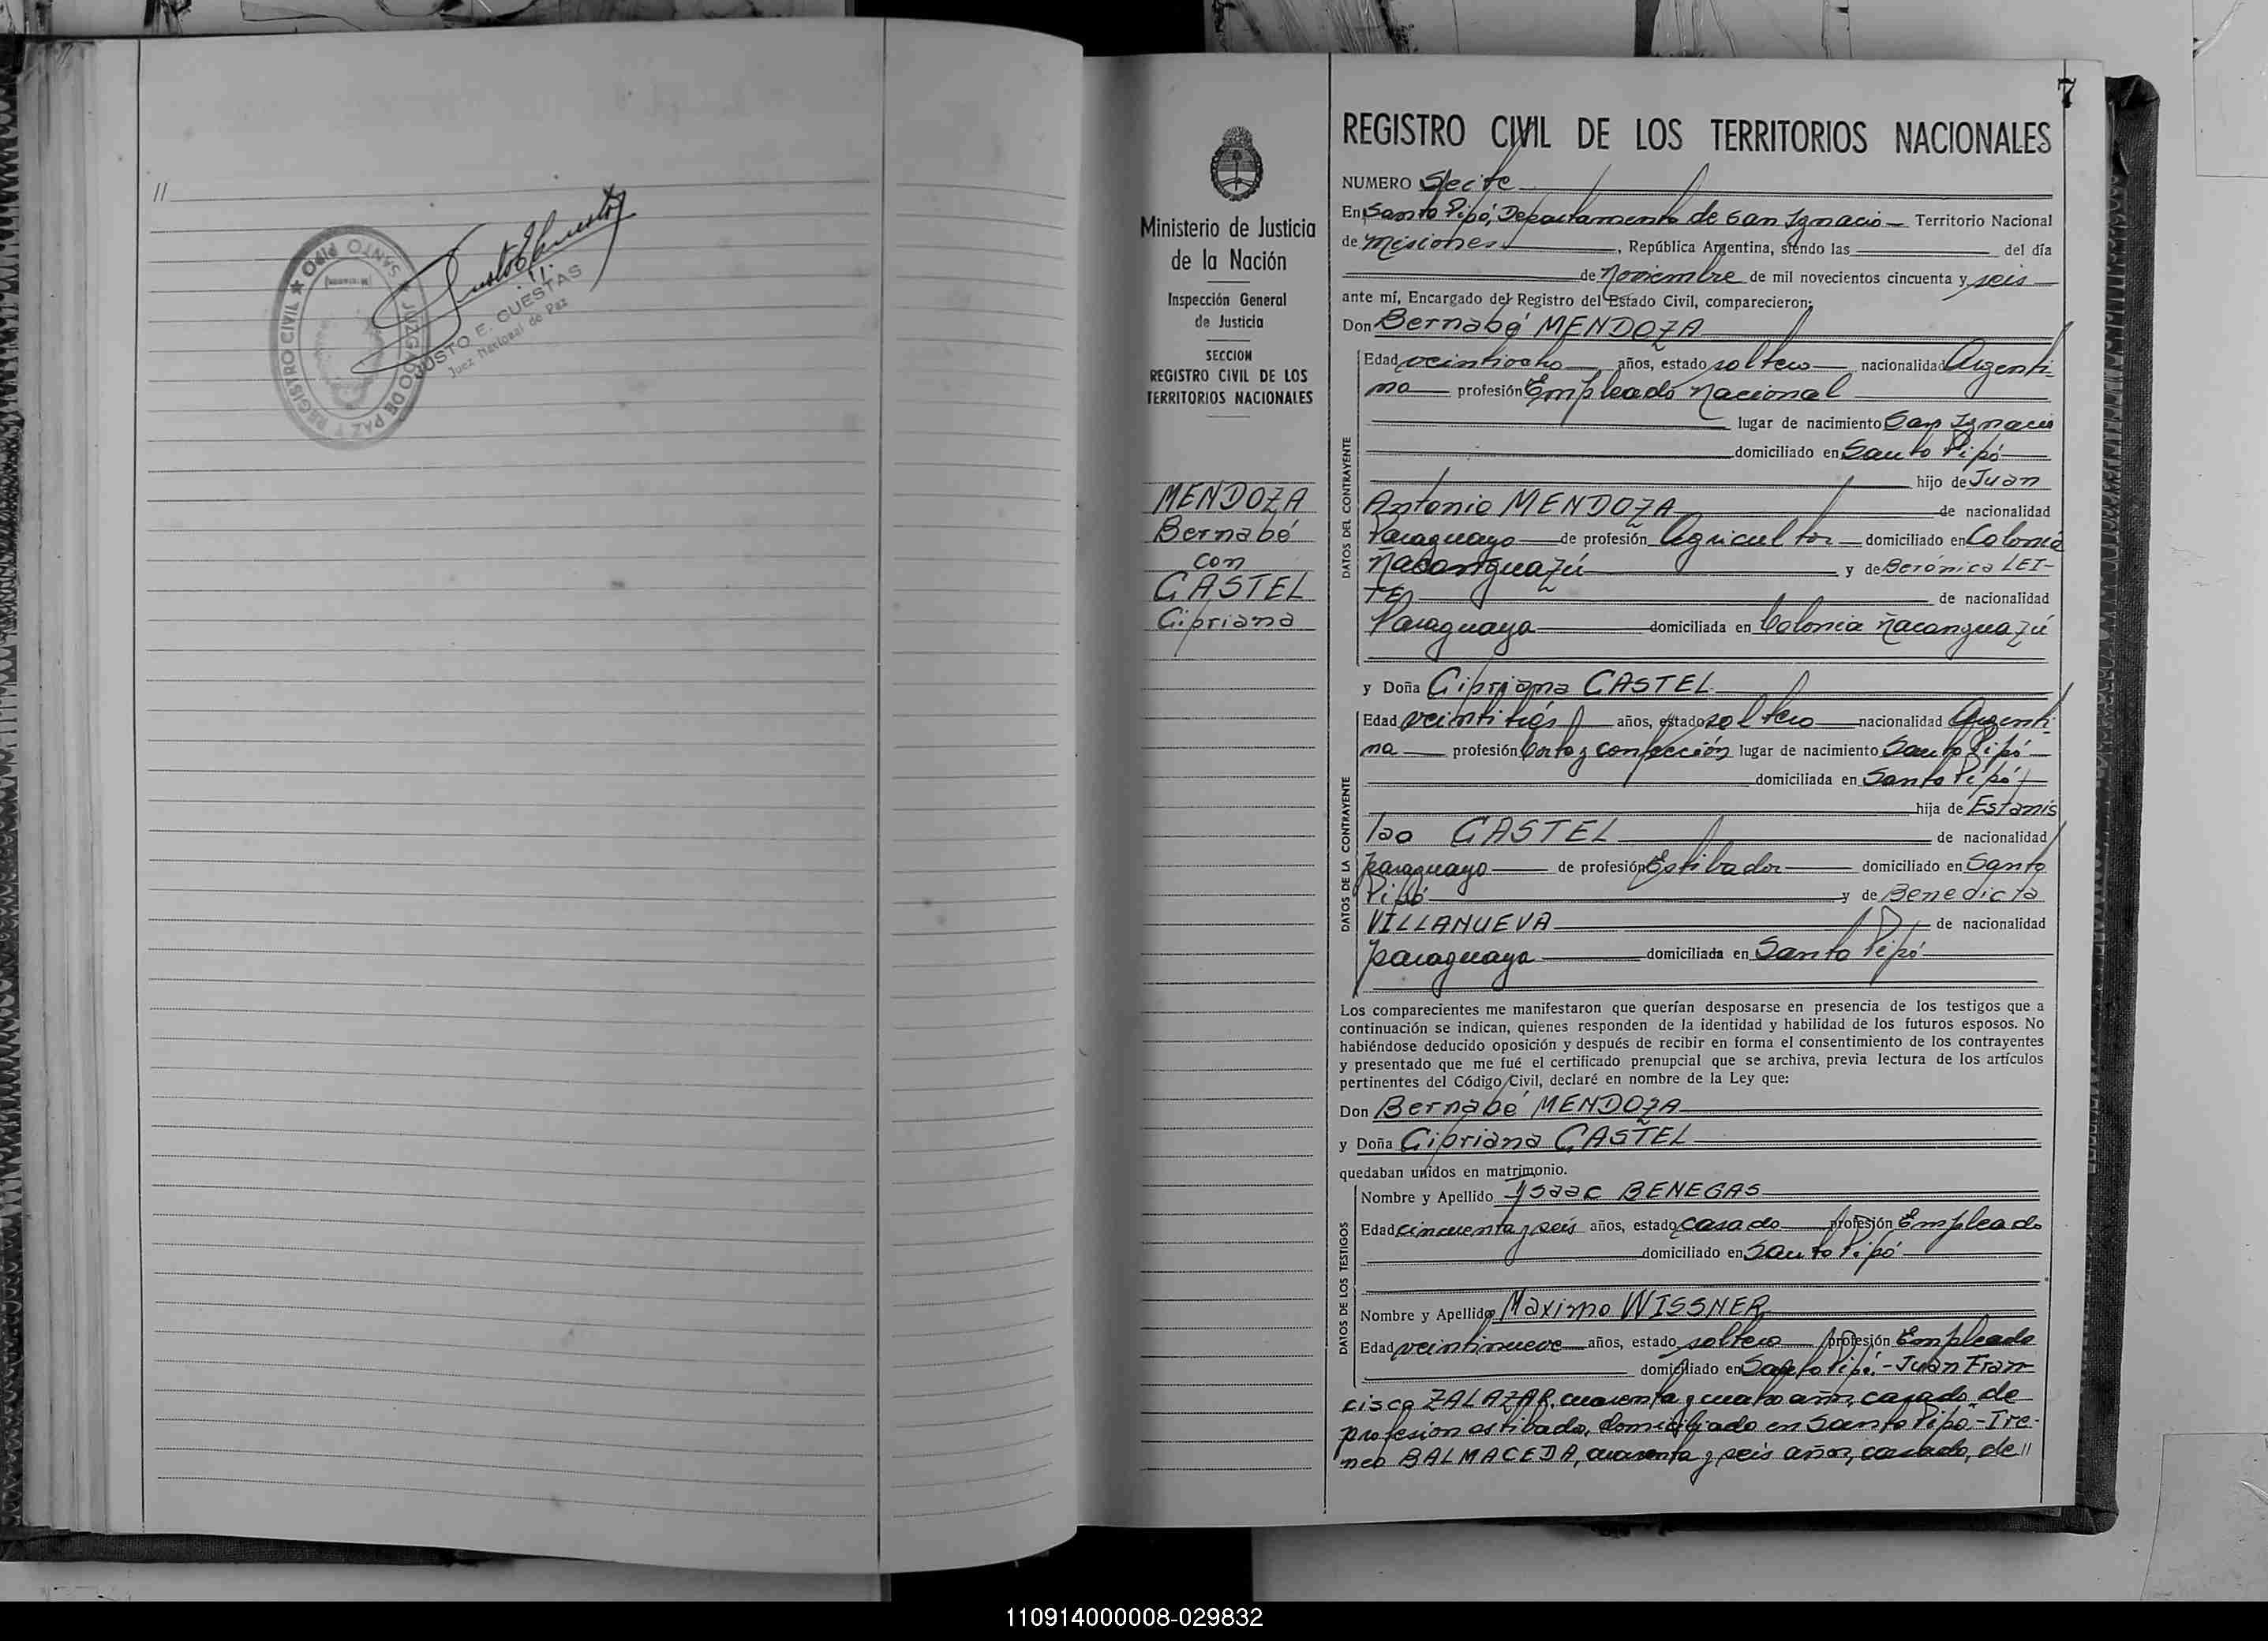 //
SANTO PIPO
(Misiones)
JUZGADO DE PAZ Y REGISTRO CIVIL
JUSTO E. CUESTAS
Juez Nacional de Paz
7
Ministerio de Justicia
de la Nación
Inspección General
de Justicia
SECCION
REGISTRO CIVIL DE LOS
TERRITORIOS NACIONALES
MENDOZA
Bernabé
con
CASTEL
Cipriana
REGISTRO CIVIL DE LOS TERRITORIOS NACIONALES
NUMERO Siete
En Santo Pipó, Departamento de San Ignacio Territorio Nacional
de Misiones, República Argentina, siendo las del día
de Noviembre de mil novecientos cincuenta y seis
ante mí, Encargado del Registro del Estado Civil, comparecieron:
Don Bernabé MENDOZA
DATOS DEL CONTRAYENTE
Edad veintiocho años, estado soltero nacionalidad Argenti-
no profesión Empleado Nacional
lugar de nacimiento San Ignacio
domiciliado en Santo Pipó
hijo de Juan
Antonio MENDOZA de nacionalidad
Paraguayo de profesión Agricultor domiciliado en Colonia
Ñacanguazú y de Berónica LEI-
TE de nacionalidad
Paraguaya domiciliada en Colonia Ñacanguazú
y Doña Cipriana CASTEL
DATOS DE LA CONTRAYENTE
Edad veintitrés años, estado soltero nacionalidad Argenti-
na profesión Corte y confección lugar de nacimiento Santo Pipó
domiciliada en Santo Pipó
hija de Estanis
lao CASTEL de nacionalidad
paraguayo de profesión Estibador domiciliado en Santo
Pipó y de Benedicta
VILLANUEVA de nacionalidad
paraguaya domiciliada en Santo Pipó
Los comparecientes me manifestaron que querían desposarse en presencia de los testigos que a
continuación se indican, quienes responden de la identidad y habilidad de los futuros esposos. No
habiéndose deducido oposición y después de recibir en forma el consentimiento de los contrayentes
y presentado que me fué el certificado prenupcial que se archiva, previa lectura de los artículos
pertinentes del Código Civil, declaré en nombre de la Ley que:
Don Bernabé MENDOZA
y Doña Cipriana CASTEL
quedaban unidos en matrimonio.
DATOS DE LOS TESTIGOS
Nombre y Apellido Ysaac BENEGAS
Edad cincuenta y seis años, estado casado profesión Empleado
domiciliado en Santo Pipó
Nombre y Apellido Maximo WISSNER
Edad veintinueve años, estado soltero profesión Empleado
domiciliado en Santo Pipó.- Juan Fran
cisco ZALAZAR, cuarenta y cuatro años, casado, de
profesion estibador, domiciliado en Santo Pipó.- Ire-
neo BALMACEDA, cuarenta y seis años, casado, de //
110914000008-029832